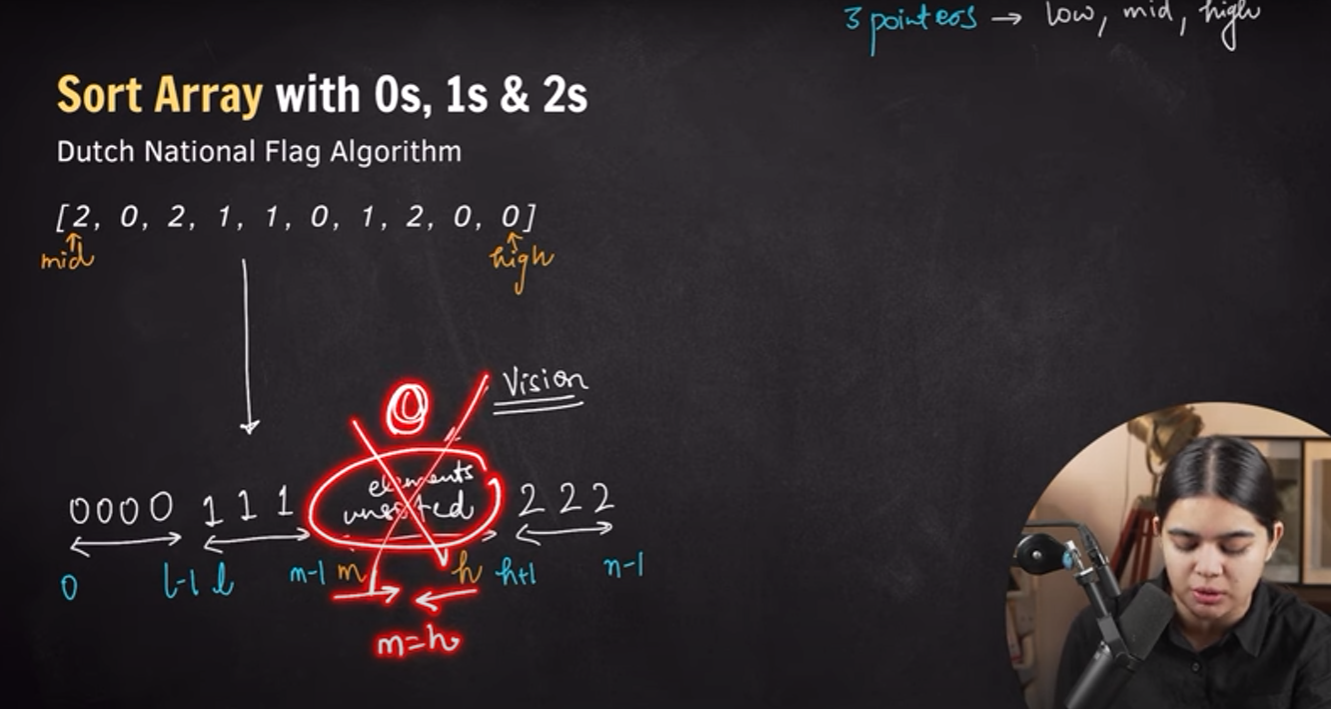 3 pointers → low, mid, high
Sort Array with 0s, 1s & 2s
Dutch National Flag Algorithm
[2, 0, 2, 1, 1, 0, 1, 2, 0, 0]
mid high
Vision
0
elements
unsorted
0000 1 1 1 2 2 2
0 l-1 l m-1 m h h+1 n-1
m=h